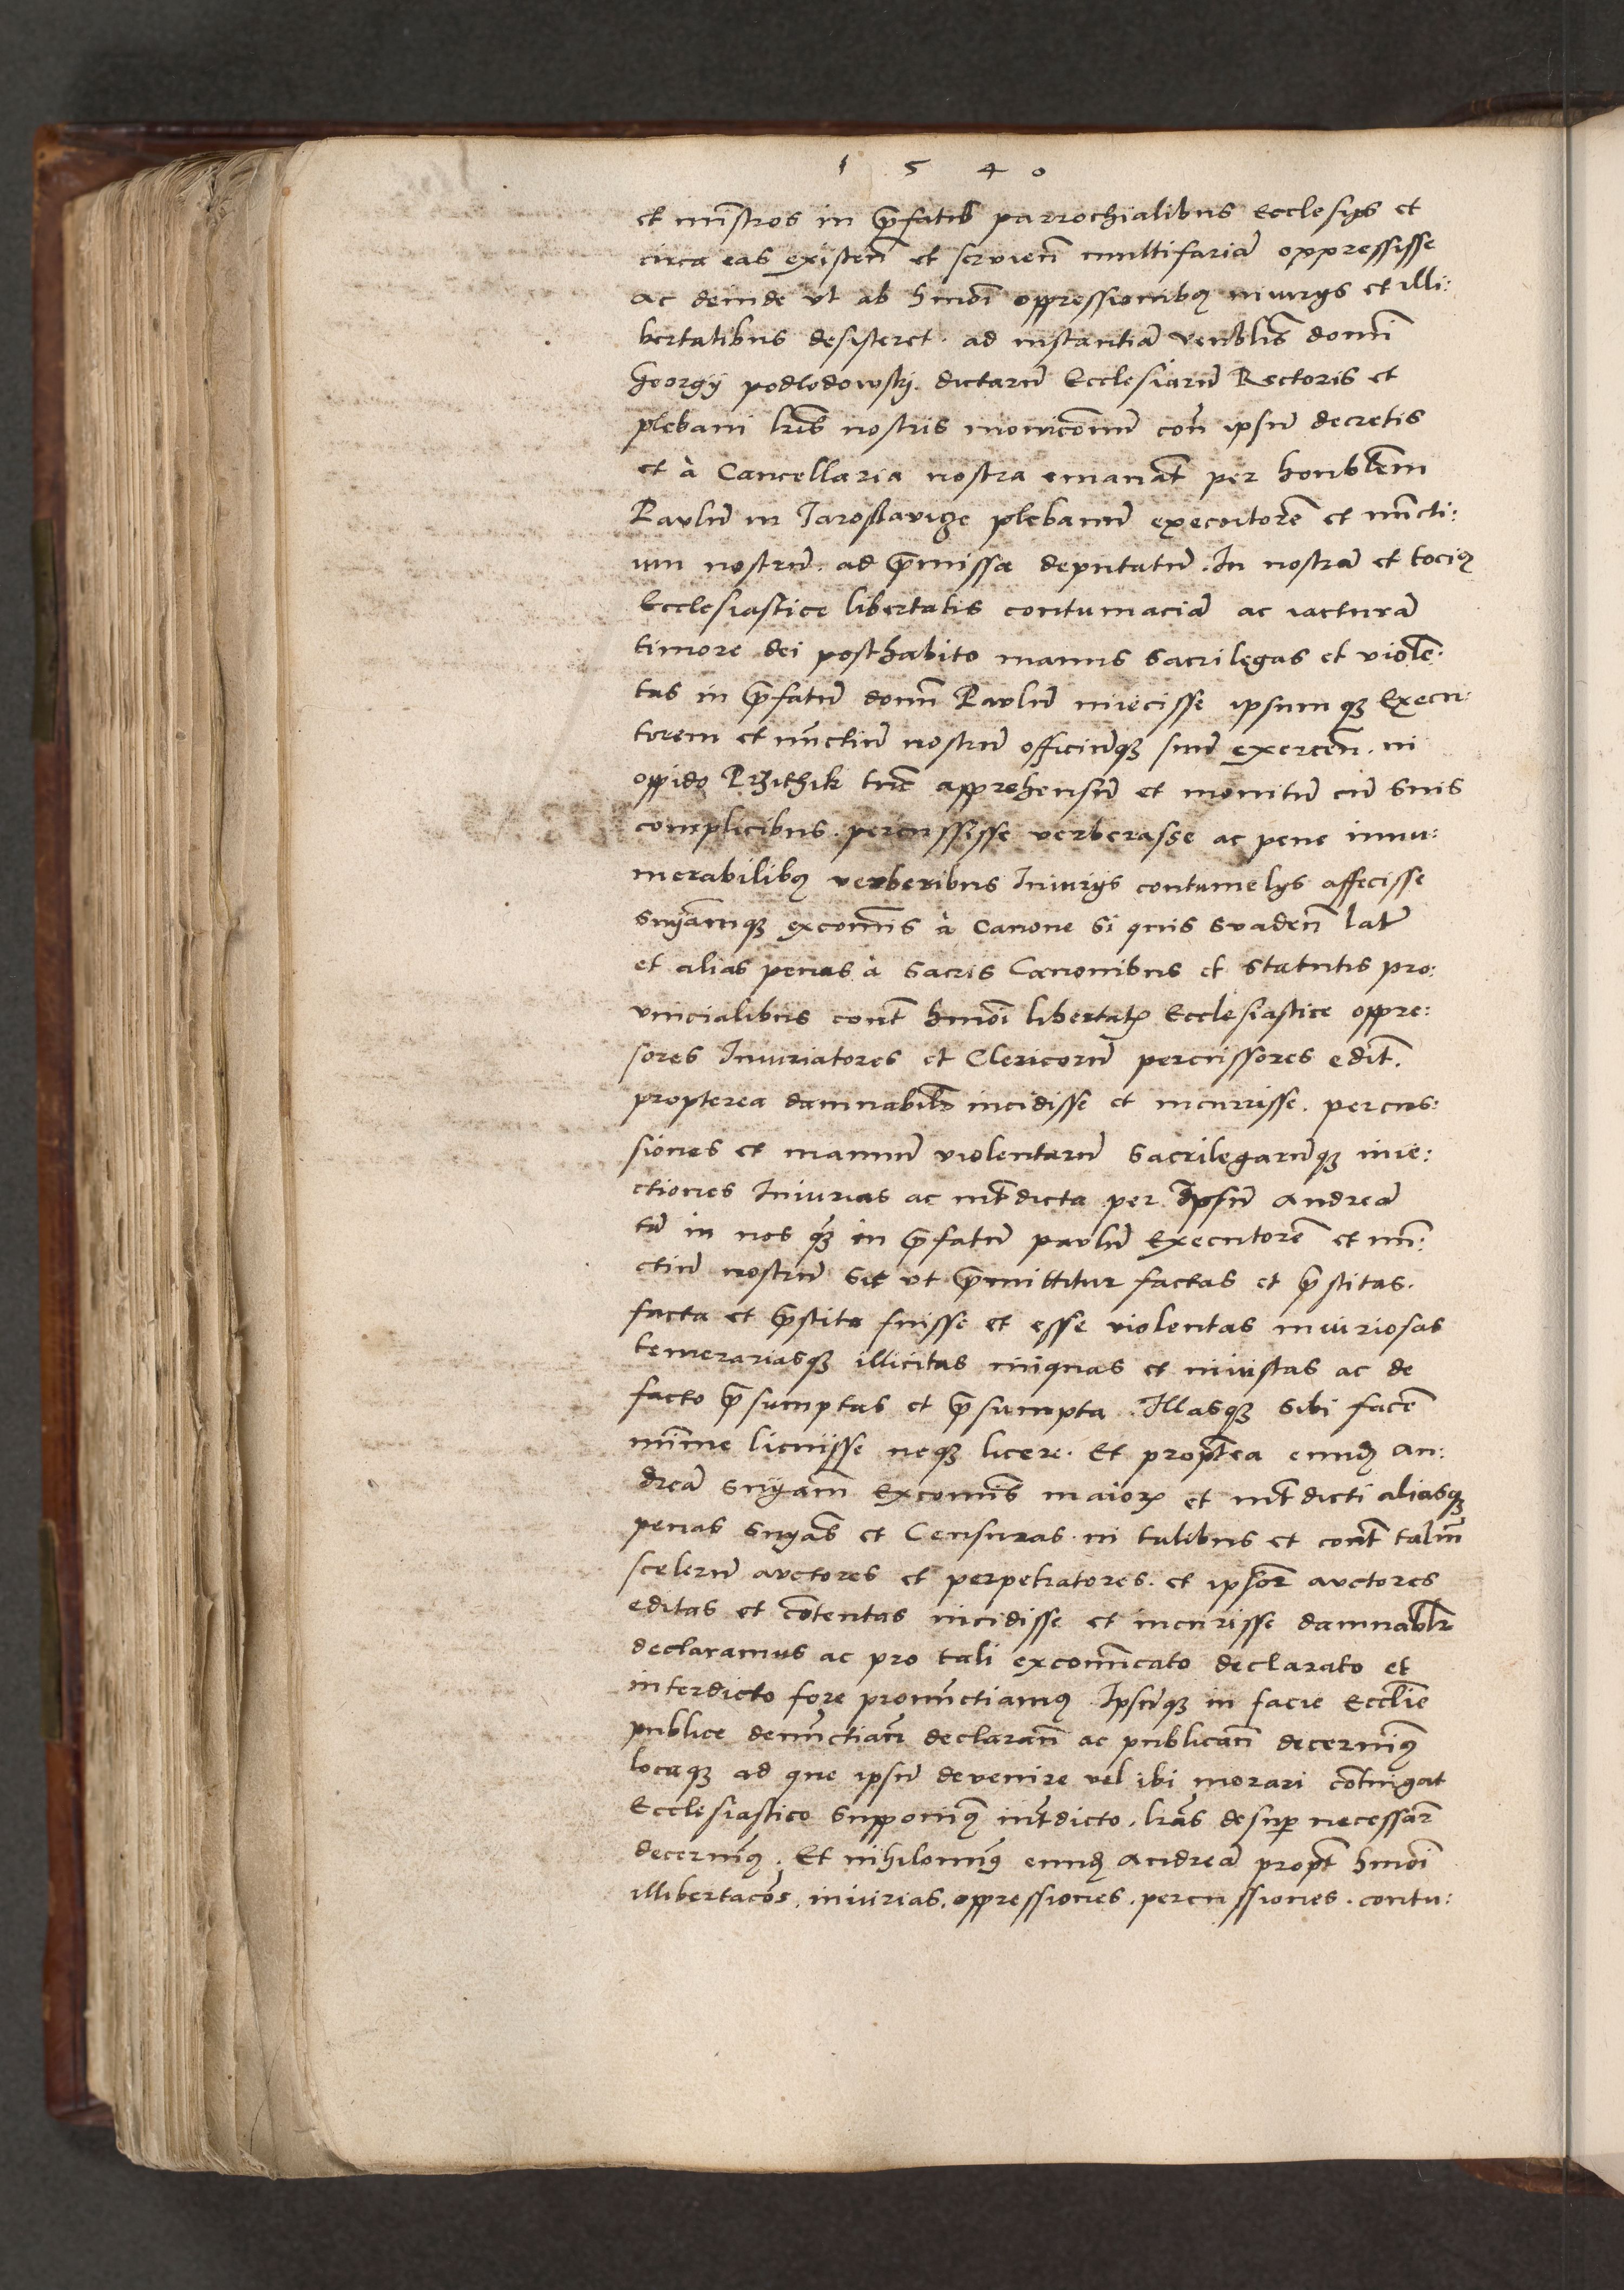 1 5 4 0
et mīstros in p̄fatis parrochialibus Ecclesijs et
circa eas existeñ et servieñ multifariā oppressisse
ac deinde vt ab hmōi oppressionibꝫ iniurijs et illi:
bertatibus desisteret. ad instantiā venēblis domi
Georgij podlodowskj. dictarū Ecclesiarū Rectoris et
plebani lr̄is nostris monicōnum con̄ ipsum decretis
et à Cancellaria nostra emanat̄ per honblēm
Paulū in Jaroslavicze plebanum executorē et nūcti:
um nostrū. ad p̄missa deputatū. In nostrā et tociꝰ
Ecclesiastice libertatis contumaciā ac iacturā
timore dei posthabito manus sacrilegas et violē:
tas in p̄fatū domn̄ Paulū iniecisse ipsumqꝫ Execu:
torem et nūctiū nostrū officiūqꝫ suū exerceñ. in
oppido Przithik tūc apprehensū et monitū cū suis
complicibus. percussisse verberasse ac pene innu:
merabilibꝫ verberibus Iniurijs contumelijs affecisse
sn̄iamqꝫ excomīs à Canone si quis svadeñ lat̄
et alias penas à sacris Canonibus et statutis pro:
vincialibus cont̄ hmōi libertat̄ Ecclesiastice oppre:
sores Iniuriatores et Clericorū percussores edit̄.
propterea damnabilr̄ incidisse et incurrisse. percus:
siones et manuum violentarū sacrilegarūqꝫ inie:
ctiones Iniurias ac int̄dicta per Ipsū Andreā
tā in nos qꝫ in p̄fatū paulū Executorē et nū:
ctiū nostrū sic vt p̄mittitur factas et p̄stitas.
facta et p̄stita fuisse et esse violentas iniuriosas
temerariasqꝫ illicitas iniquas et iniustas ac de
facto p̄sumptas et p̄sumpta. Illasqꝫ sibi facē
mīme licuisse neqꝫ licere. Et propt̄ea eundꝫ An:
dreā sn̄iam Excomīs maioris et int̄dicti aliasqꝫ
penas sn̄ias et Censuras. in talibus et cont̄ taliū
scelerū auctores et perpetratores. et ipsor̄ auctores
editas et cōtentas incidisse et incurisse damnablr̄
declaramus ac pro tali excomīcato declarato et
interdicto fore pronūctiamꝰ Ipsūqꝫ in facie Ecclīe
publice denūctian̄ declaran̄ ac publican̄ decernimꝰ
locaqꝫ ad que ipsū devenire vel ibi morari cōtingat
Ecclesiastico supponimꝰ int̄dicto. lr̄as desup̄ necessar̄
decernimꝰ. Et nihilominꝰ eundꝫ Andreā propt̄ hmōi
illibertacōes. iniurias. oppressiones. percussiones. contu: